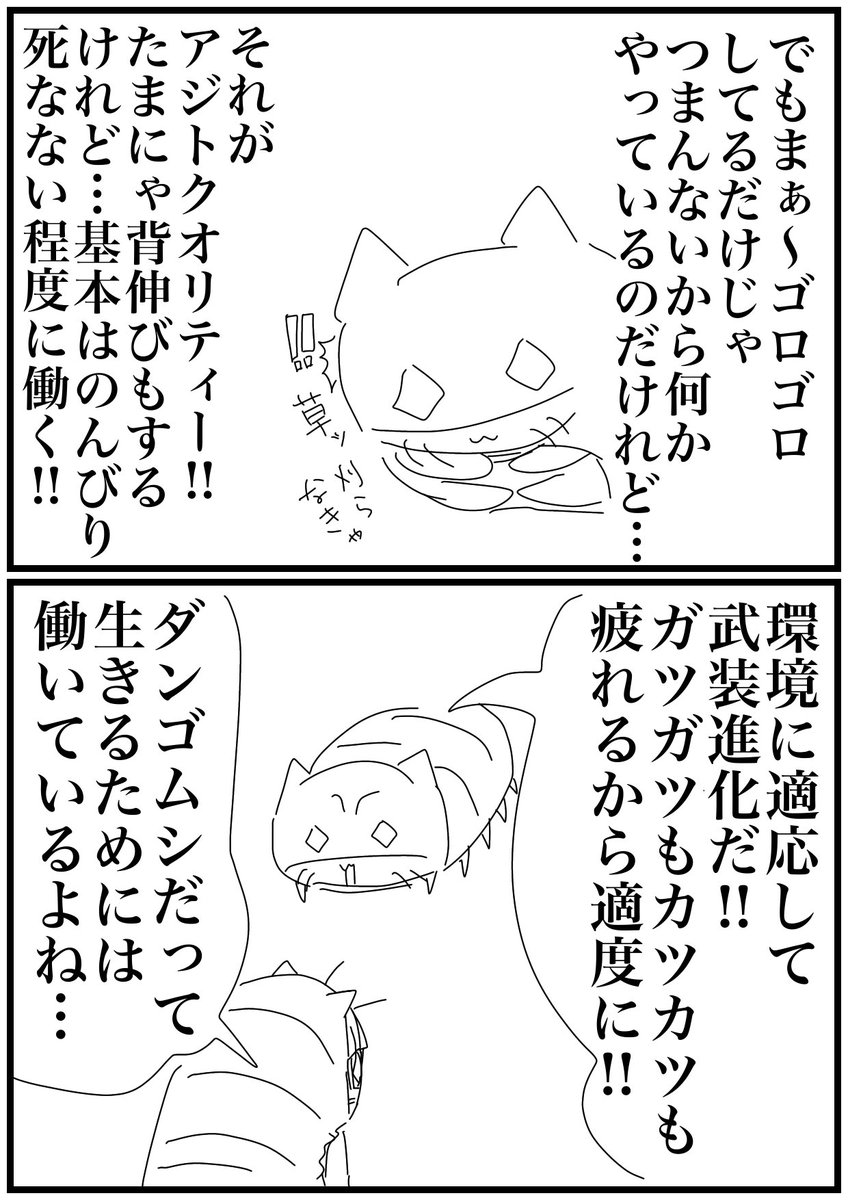 でもまぁ～ゴロゴロ
してるだけじゃ
つまんないから何か
やっているのだけれど…
!!
草ッ
刈ら
なきゃ
それが
アジトクオリティー!!
たまにゃ背伸びもする
けれど…基本はのんびり
死なない程度に働く!!
環境に適応して
武装進化だ!!
ガツガツもカツカツも
疲れるから適度に!!
ダンゴムシだって
生きるためには
働いているよね…